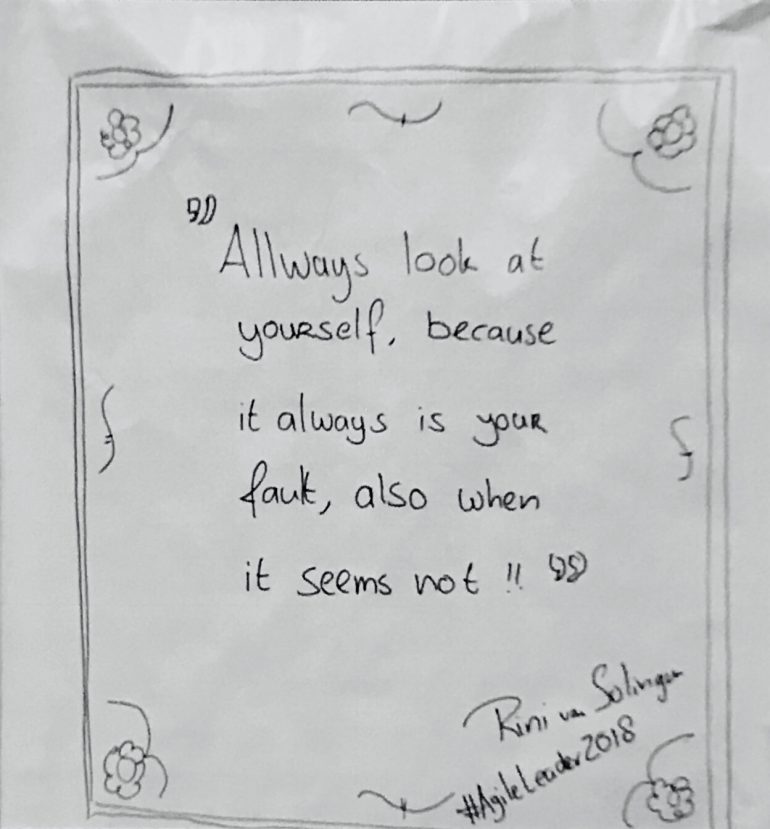 "Allways look at
yourself, because
it always is your
fault, also when
it seems not !!"
Rini van Solingen
#AgileLeader2018